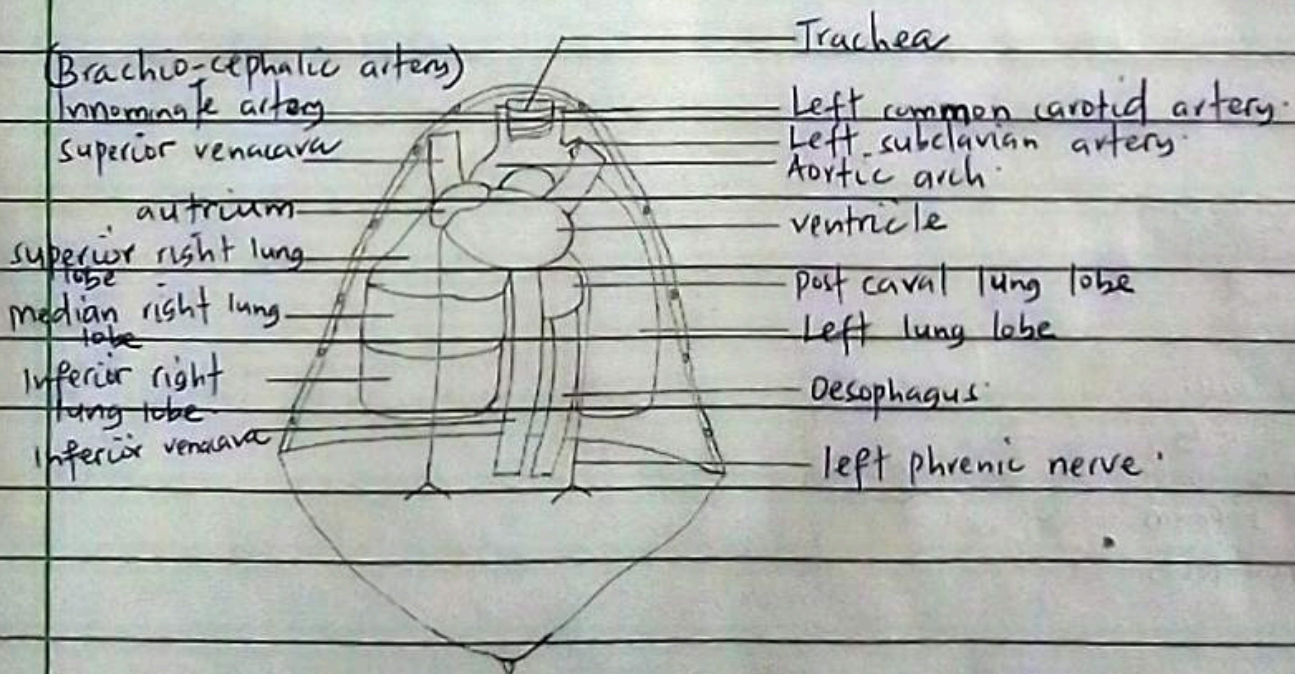 (Brachio-cephalic artery)
Innominate artery
superior venacava
autrium
superior right lung
lobe
median right lung
lobe
Inferior right
lung lobe.
Inferior venacava
Trachea
Left common carotid artery.
Left subclavian artery.
Aortic arch.
ventricle
post caval lung lobe
Left lung lobe
Oesophagus.
left phrenic nerve.